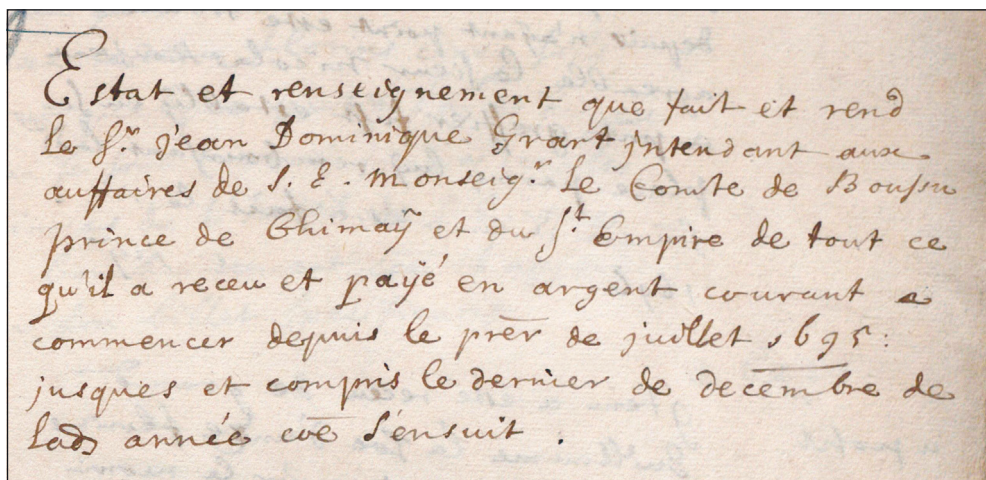 Estat et renseignement que fait et rend
Le Sr. jean Dominique Grart jntendant aux
auffaires de S. E. Monseigr. Le Comte de Boussu
prince de Chimaÿ et du St. Empire de tout ce
qu'il a receu et paÿé en argent courant a
commencer depuis le prer de juillet 1695:
jusques et compris le dernier de decembre de
lad. année coe s'ensuit .